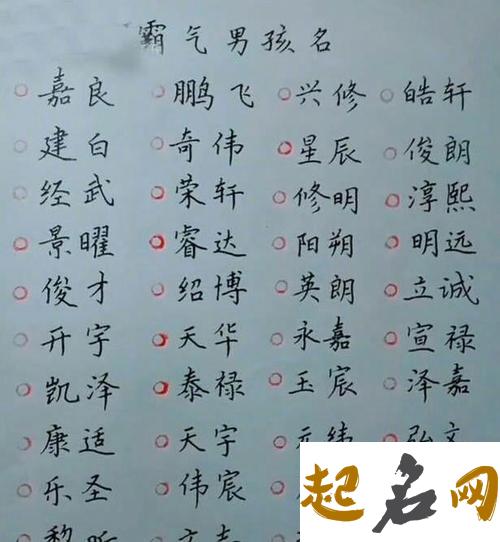 霸气男孩名
嘉良 鹏飞 兴修 皓轩
建白 奇伟 星辰 俊朗
经武 荣轩 修明 淳熙
景曜 睿达 阳朔 明远
俊才 绍博 英朗 立诚
开宇 天华 永嘉 宣禄
凯泽 泰禄 玉宸 泽嘉
康适 天宇 元纬 弘文
乐圣 伟宸
起名网